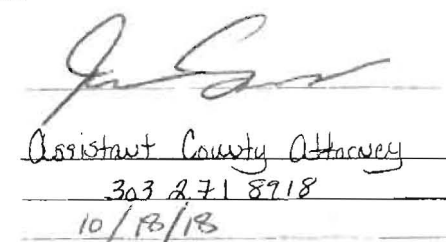 Assistant County Attorney
303 271 8918
10/18/18